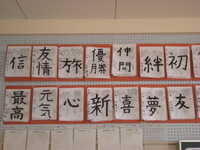 信 友情 旅 優勝 仲間 絆 初
最高 元気 心 新 喜 夢 友